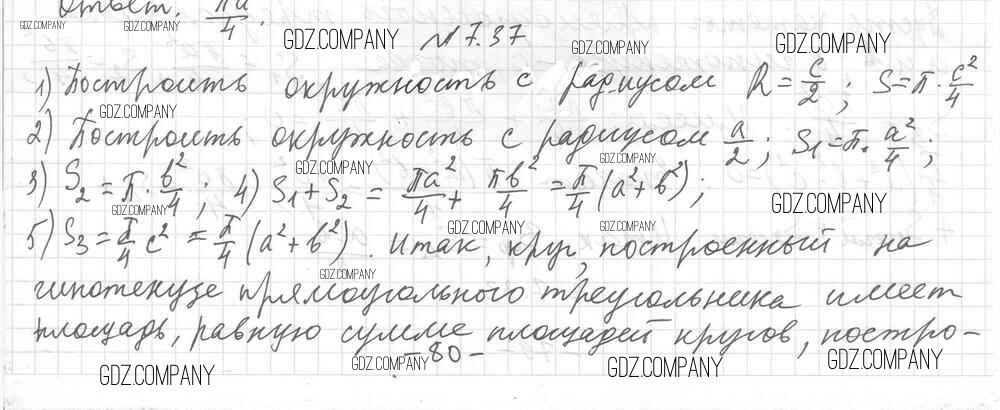 Ответ. πa/4.
GDZ.COMPANY GDZ.COMPANY
GDZ.COMPANY №7.37 GDZ.COMPANY GDZ.COMPANY
1) Построить окружность с радиусом R = c/2; S = π · c²/4
GDZ.COMPANY
2) Построить окружность с радиусом a/2; S₁ = π · a²/4;
GDZ.COMPANY GDZ.COMPANY
3) S₂ = π · b²/4; 4) S₁ + S₂ = πa²/4 + πb²/4 = π/4 (a² + b²);
GDZ.COMPANY GDZ.COMPANY GDZ.COMPANY GDZ.COMPANY
5) S₃ = π/4 c² = π/4 (a² + b²). Итак, круг, построенный на
GDZ.COMPANY
гипотенузе прямоугольного треугольника имеет
площадь, равную сумме площадей кругов, постро-
-80-
GDZ.COMPANY GDZ.COMPANY GDZ.COMPANY GDZ.COMPANY